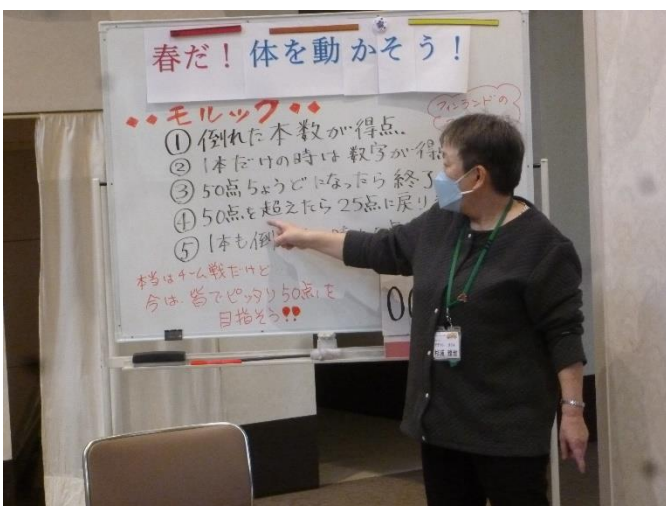 春だ!体を動かそう!
フィンランドの
・・モルック・・
① 倒れた本数が得点。
② 1本だけの時は数字が得点
③ 50点ちょうどになったら終了
④ 50点を超えたら25点に戻り
⑤ 1本も倒
本当はチーム戦だけど
今は、皆でピッタリ50点を
目指そう!!